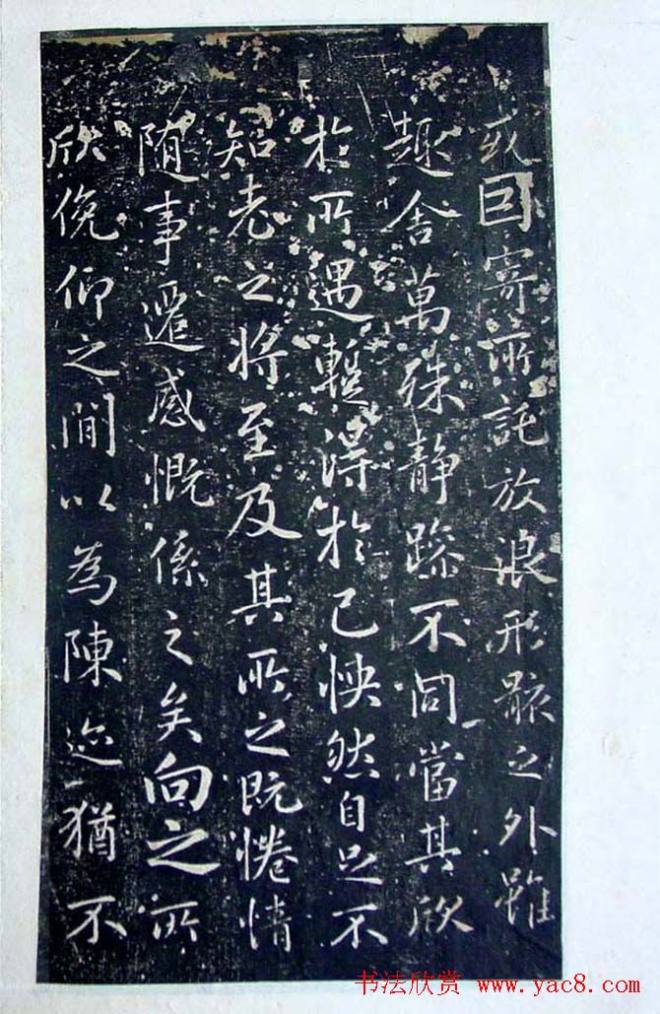 或因寄所託放浪形骸之外雖
趣舍萬殊静躁不同當其欣
於所遇蹔得於己怏然自足不
知老之將至及其所之既惓情
随事遷感慨係之矣向之所
欣俛仰之閒以為陳迹猶不
书法欣赏 www.yac8.com